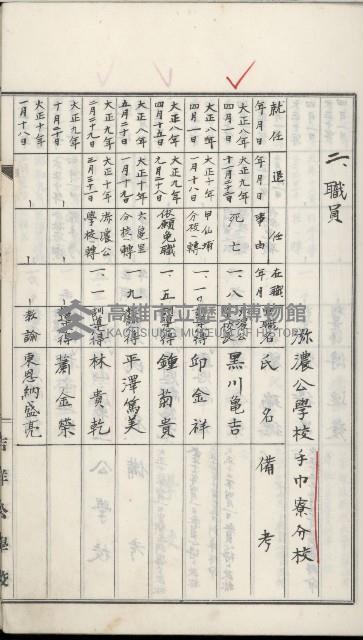 二、職員
瀰濃公學校手巾寮分校
就任 年月日
退任 年月日 事由
在職 年月
職名 氏名 備考
大正八年四月一日 大正九年十一月二十二日 死亡 一、八 黒川亀吉
大正八年四月一日 大正十年一月十八日 甲仙埔分校へ轉 邱金祥
大正八年四月十五日 大正九年九月二十八日 依願免職 一、五 鍾菊貴
大正八年五月二十日 大正十年一月十九日 六亀里分校へ轉 一、九 平澤篤美
大正九年二月二十九日 大正十年三月三十一日 瀰濃公學校へ轉 一、一 訓導 林貴乾
大正九年十月二十日 蕭金榮
大正十年一月十八日 教諭 東恩納盛亮
高雄市立歷史博物館
KAOHSIUNG MUSEUM OF HISTORY